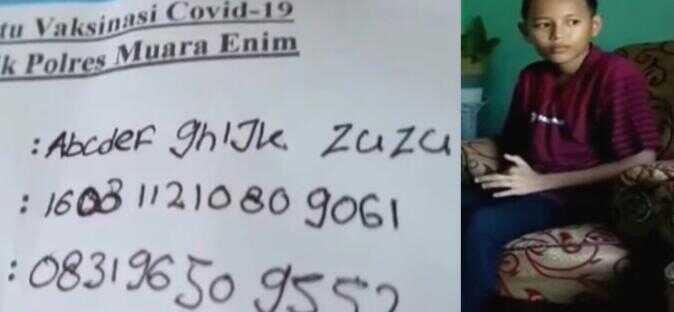 tu Vaksinasi Covid-19
k Polres Muara Enim
: Abcdef ghIJk zuzu
: 160311210809061
: 083196509552